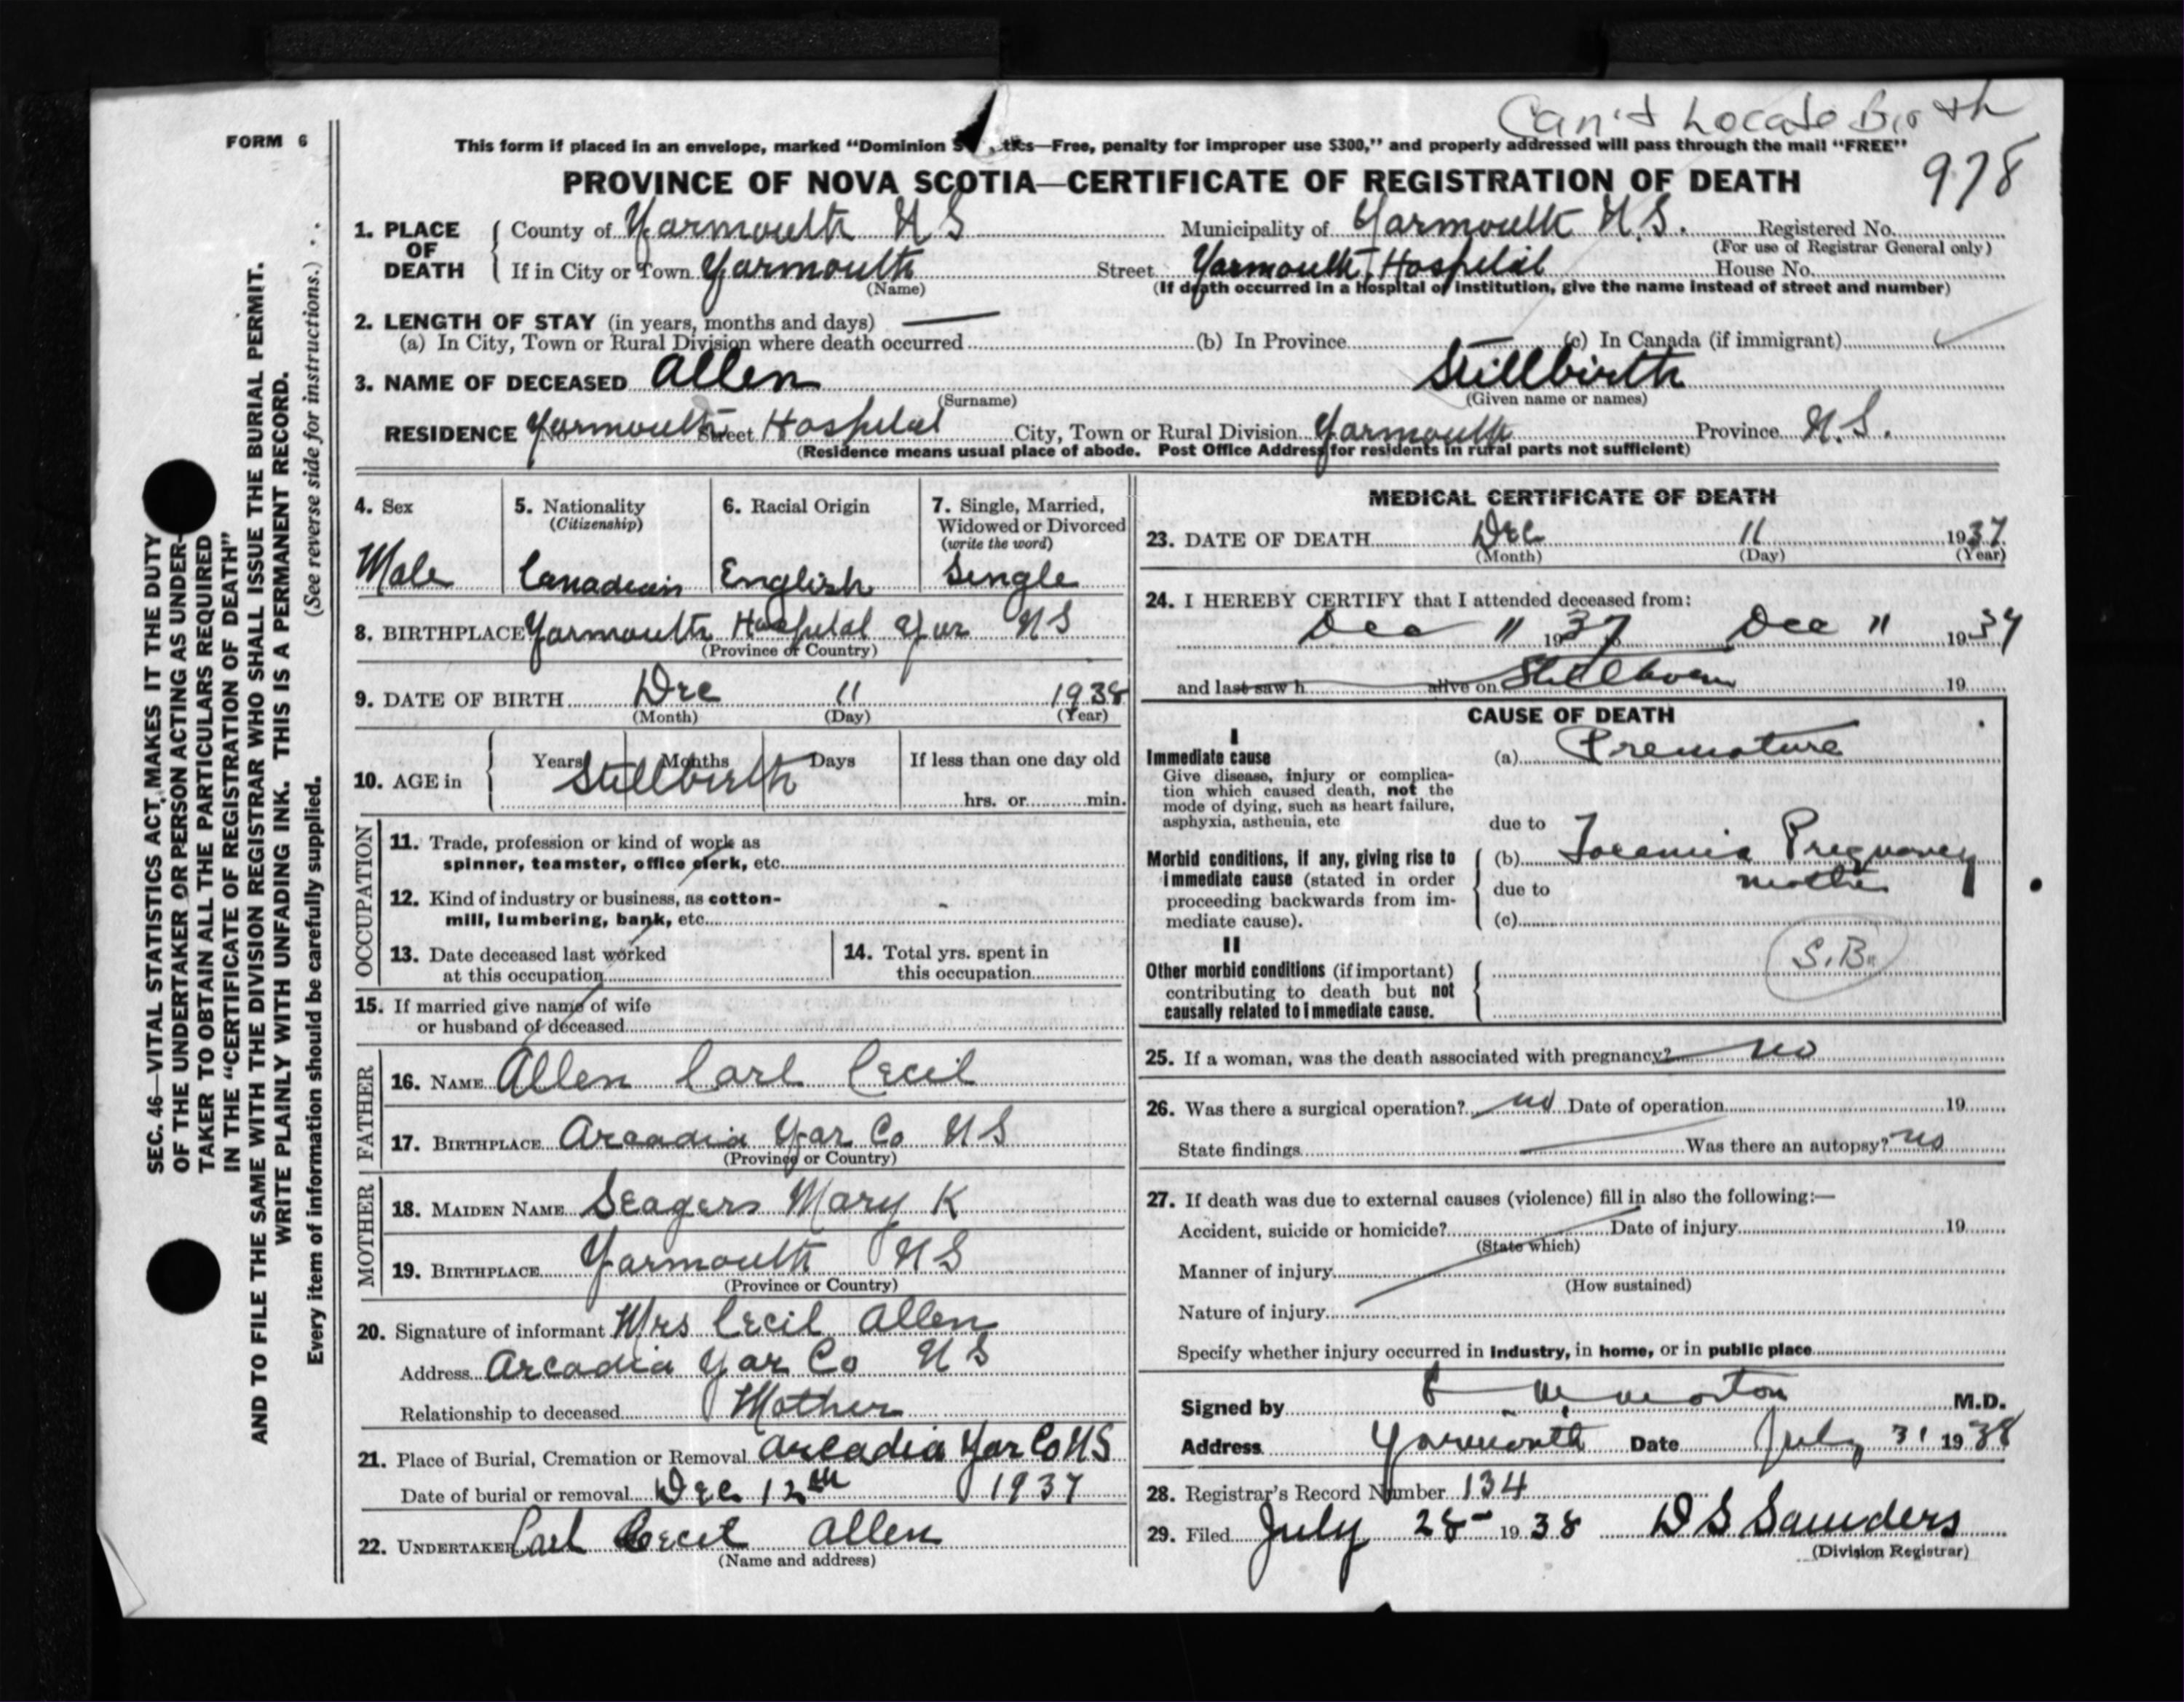 Can't Locate Birth
FORM 6
This form if placed in an envelope, marked “Dominion S tics—Free, penalty for improper use $300,” and properly addressed will pass through the mail “FREE”
978
PROVINCE OF NOVA SCOTIA—CERTIFICATE OF REGISTRATION OF DEATH
1. PLACE OF DEATH
County of Yarmouth N S Municipality of Yarmouth N.S. Registered No.
(For use of Registrar General only)
If in City or Town Yarmouth Street Yarmouth Hospital House No.
(Name) (If death occurred in a hospital or institution, give the name instead of street and number)
2. LENGTH OF STAY (in years, months and days) —
(a) In City, Town or Rural Division where death occurred (b) In Province (c) In Canada (if immigrant)
3. NAME OF DECEASED Allen Stillbirth
(Surname) (Given name or names)
RESIDENCE No Yarmouth Street Hospital City, Town or Rural Division Yarmouth Province N.S.
(Residence means usual place of abode. Post Office Address for residents in rural parts not sufficient)
SEC. 46—VITAL STATISTICS ACT, MAKES IT THE DUTY
OF THE UNDERTAKER OR PERSON ACTING AS UNDER-
TAKER TO OBTAIN ALL THE PARTICULARS REQUIRED
IN THE “CERTIFICATE OF REGISTRATION OF DEATH”
AND TO FILE THE SAME WITH THE DIVISION REGISTRAR WHO SHALL ISSUE THE BURIAL PERMIT.
WRITE PLAINLY WITH UNFADING INK. THIS IS A PERMANENT RECORD.
Every item of information should be carefully supplied. (See reverse side for instructions.) . .
4. Sex
Male
5. Nationality
(Citizenship)
Canadian
6. Racial Origin
English
7. Single, Married,
Widowed or Divorced
(write the word)
Single
8. BIRTHPLACE Yarmouth Hospital Yar N S
(Province or Country)
9. DATE OF BIRTH Dec 11 1938
(Month) (Day) (Year)
10. AGE in Years Months Days If less than one day old
Stillbirth
hrs. or min.
OCCUPATION
11. Trade, profession or kind of work as
spinner, teamster, office clerk, etc.
12. Kind of industry or business, as cotton-
mill, lumbering, bank, etc.
13. Date deceased last worked
at this occupation
14. Total yrs. spent in
this occupation
15. If married give name of wife
or husband of deceased
FATHER
16. NAME Allen Carl Cecil
17. BIRTHPLACE Arcadia Yar Co N S
(Province or Country)
MOTHER
18. MAIDEN NAME Seagers Mary K
19. BIRTHPLACE Yarmouth N S
(Province or Country)
20. Signature of informant Mrs Cecil Allen
Address Arcadia Yar Co N S
Relationship to deceased Mother
21. Place of Burial, Cremation or Removal Arcadia Yar Co N S
Date of burial or removal Dec 12th 1937
22. UNDERTAKER Carl Cecil Allen
(Name and address)
MEDICAL CERTIFICATE OF DEATH
23. DATE OF DEATH Dec 11 1937
(Month) (Day) (Year)
24. I HEREBY CERTIFY that I attended deceased from:
Dec 11 1937 Dec 11 1937
and last saw h alive on Stillborn 19
CAUSE OF DEATH
I
Immediate cause
Give disease, injury or complica-
tion which caused death, not the
mode of dying, such as heart failure,
asphyxia, asthenia, etc
(a) Premature
due to
Morbid conditions, if any, giving rise to
immediate cause (stated in order
proceeding backwards from im-
mediate cause).
(b) Toxemia Pregnancy
due to mother
(c)
II
Other morbid conditions (if important)
contributing to death but not
causally related to immediate cause.
S.B.
25. If a woman, was the death associated with pregnancy? no
26. Was there a surgical operation? no Date of operation 19
State findings Was there an autopsy? no
27. If death was due to external causes (violence) fill in also the following:—
Accident, suicide or homicide? Date of injury 19
(State which)
Manner of injury
(How sustained)
Nature of injury
Specify whether injury occurred in industry, in home, or in public place
Signed by W. Morton M.D.
Address Yarmouth Date July 31 1938
28. Registrar's Record Number 134
29. Filed July 28 1938 D S Saunders
(Division Registrar)